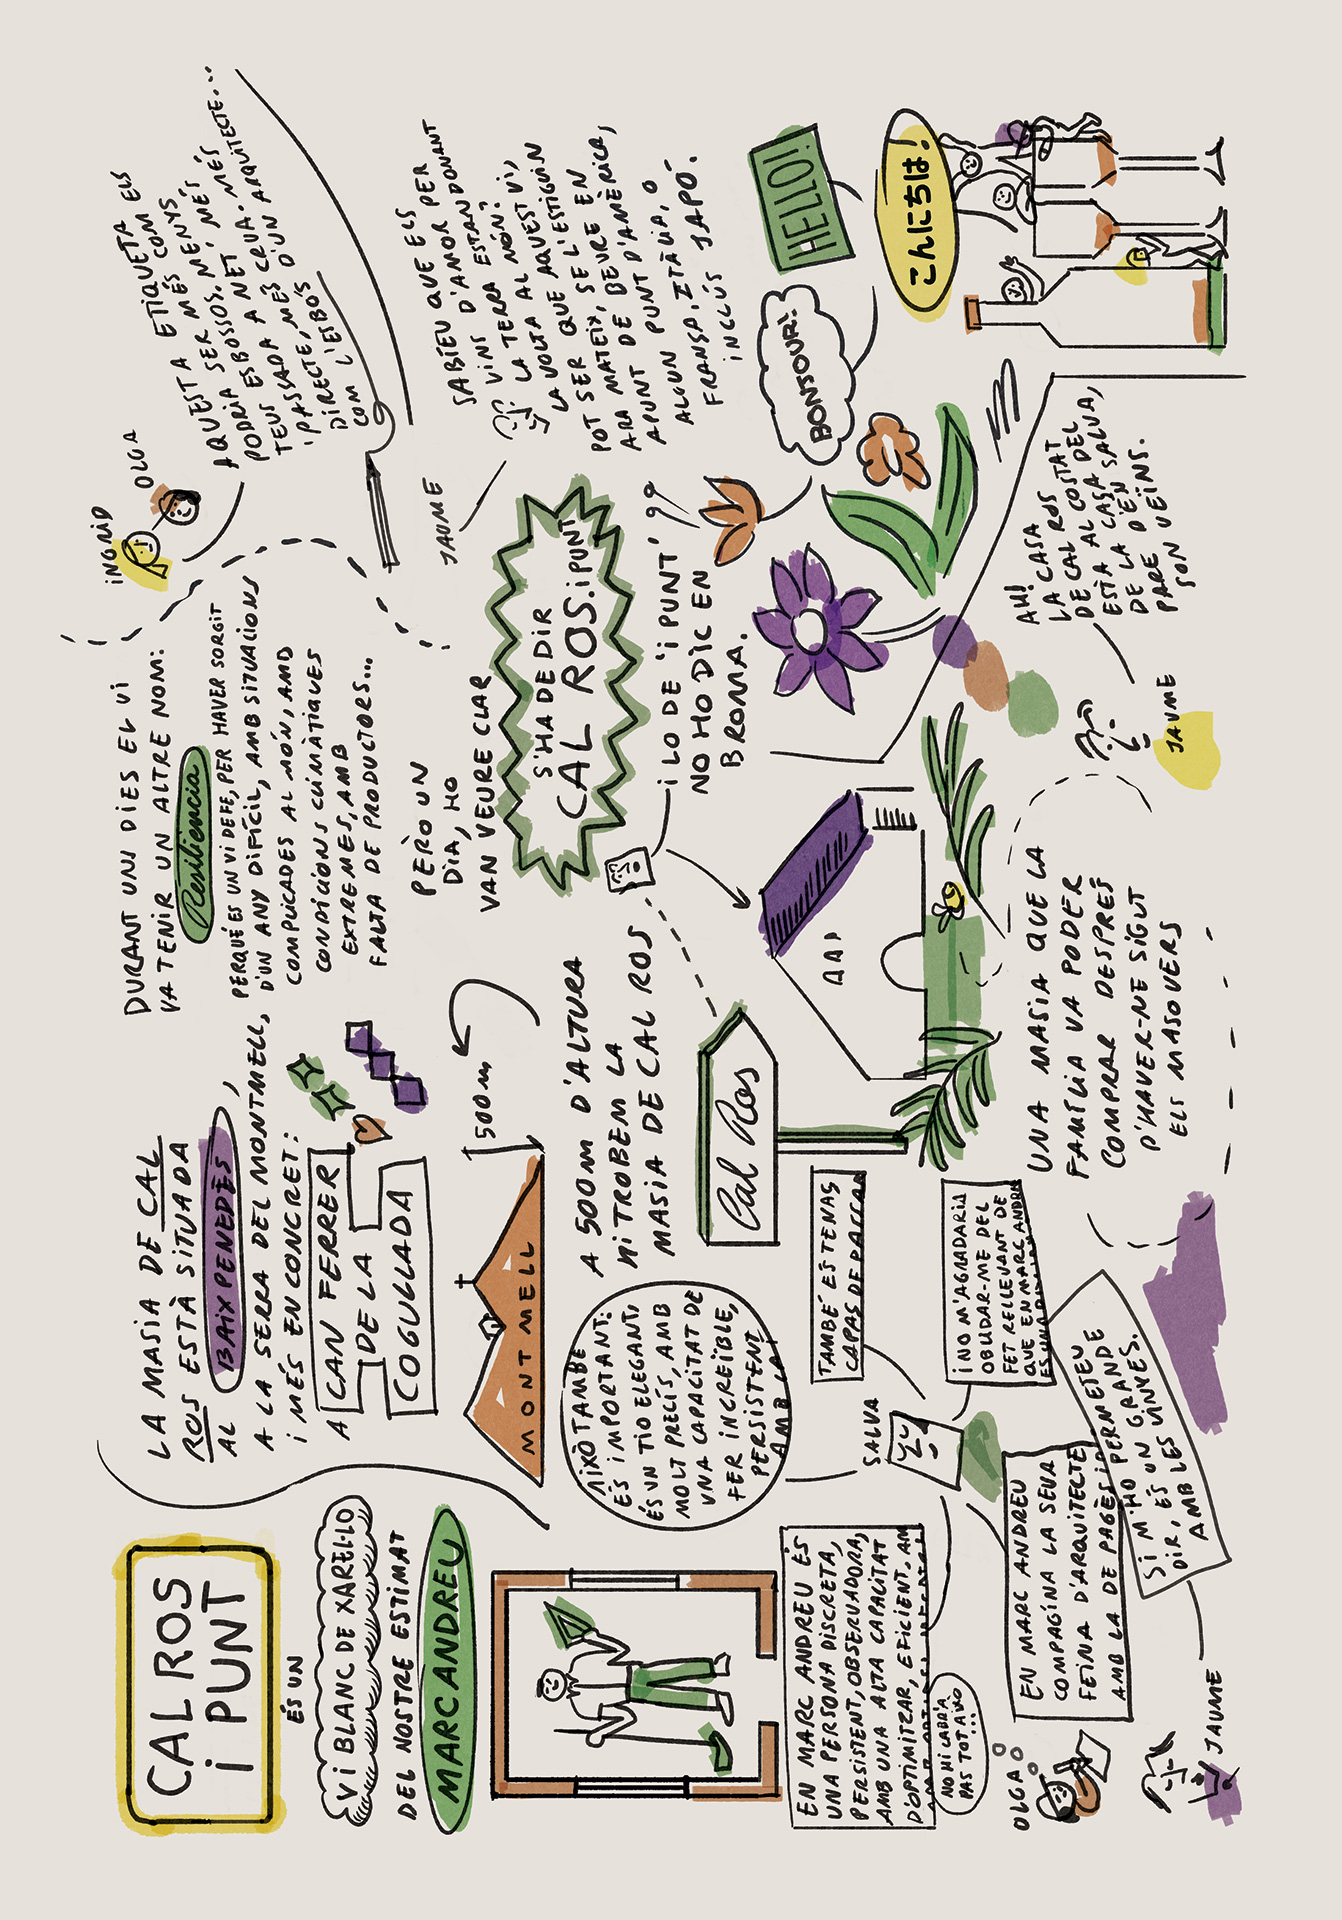 CAL ROS
I PUNT
ÉS UN
VI BLANC DE XAREL·LO
DEL NOSTRE ESTIMAT
MARC ANDREU
EN MARC ANDREU ÉS
UNA PERSONA DISCRETA,
PERSISTENT, OBSERVADORA,
AMB UNA ALTA CAPACITAT
D'OPTIMITZAR, EFICIENT, AM
NO HI CABRÀ
PAS TOT AIXÒ...
OLGA
JAUME
EN MARC ANDREU
COMPAGINA LA SEVA
FEINA D'ARQUITECTE
AMB LA DE PAGÈS
I PERMETEU
SI M'HO PERMETEU
DIR, ÉS UN GRAN DE
AMB LES VINYES.
SALVA
AIXÒ TAMBÉ
ÉS IMPORTANT:
ÉS UN TIO ELEGANT,
MOLT PRECÍS, AMB
UNA CAPACITAT DE
FER INCREÏBLE,
PERSISTENT
AMB LA
TAMBÉ ES TENAÇ
CAPAÇ DE PARRAR
I NO M'AGRADARIA
OBLIDAR-ME DEL
FET RELLEVANT DE
QUE EN MARC ANDREU
LA MASIA DE CAL
ROS ESTÀ SITUADA
AL BAIX PENEDÈS,
A LA SERRA DEL MONTMELL,
I MÉS EN CONCRET:
A CAN FERRER
DE LA
COGULLADA
MONTMELL
500m
A 500m D'ALTURA
HI TROBEM LA
MASIA DE CAL ROS
Cal Ros
UNA MASIA QUE LA
FAMÍLIA VA PODER
COMPRAR DESPRÉS
D'HAVER-NE SIGUT
ELS MASOVERS
DURANT UNI DIES EL VI
VA TENIR UN ALTRE NOM:
Resiliencia
PERQUÈ ÉS UN VI DEFE, PER HAVER SORGIT
D'UN ANY DIFÍCIL, AMB SITUACIONS
COMPLICADES AL MÓN, AMB
CONDICIONS CLIMÀTIQUES
EXTREMES, AMB
FALTA DE PRODUCTORS...
PERÒ UN
DIA, HO
VAN VEURE CLAR
S'HA DE DIR
CAL ROS. I PUNT
I LO DE 'I PUNT'
NO HO DIC EN
BROMA.
JAUME
AH! CASA
LA CASA ROS
DE CAL COSTAT
ESTÀ AL CASA DEL
DE LA D'EN SALVA,
PARE VEÏNS.
SON
INGRID
OLGA
AQUESTA ETIQUETA ELS
PODRIA SER MÉS COM
ESBOSSOS. MENYS
TEUS A NET I MÉS
PASSADA A CRUA. MÉS
DIRECTE, MÉS D'UN ARQUITECTE...
COM L'ESBÓS
JAUME
SABÍEU QUE ELS
VINS D'AMOR PER
LA TERRA ESTAN DONANT
LA VOLTA AL MÓN?
POT SER QUE AQUEST VI,
ARA MATEIX, SE L'ESTIGUIN
APUNT DE BEURE EN
ALGUN PUNT D'AMÈRICA,
FRANÇA, ITÀLIA, O
INCLÚS JAPÓ.
BONJOUR!
HELLO!
こんにちは。